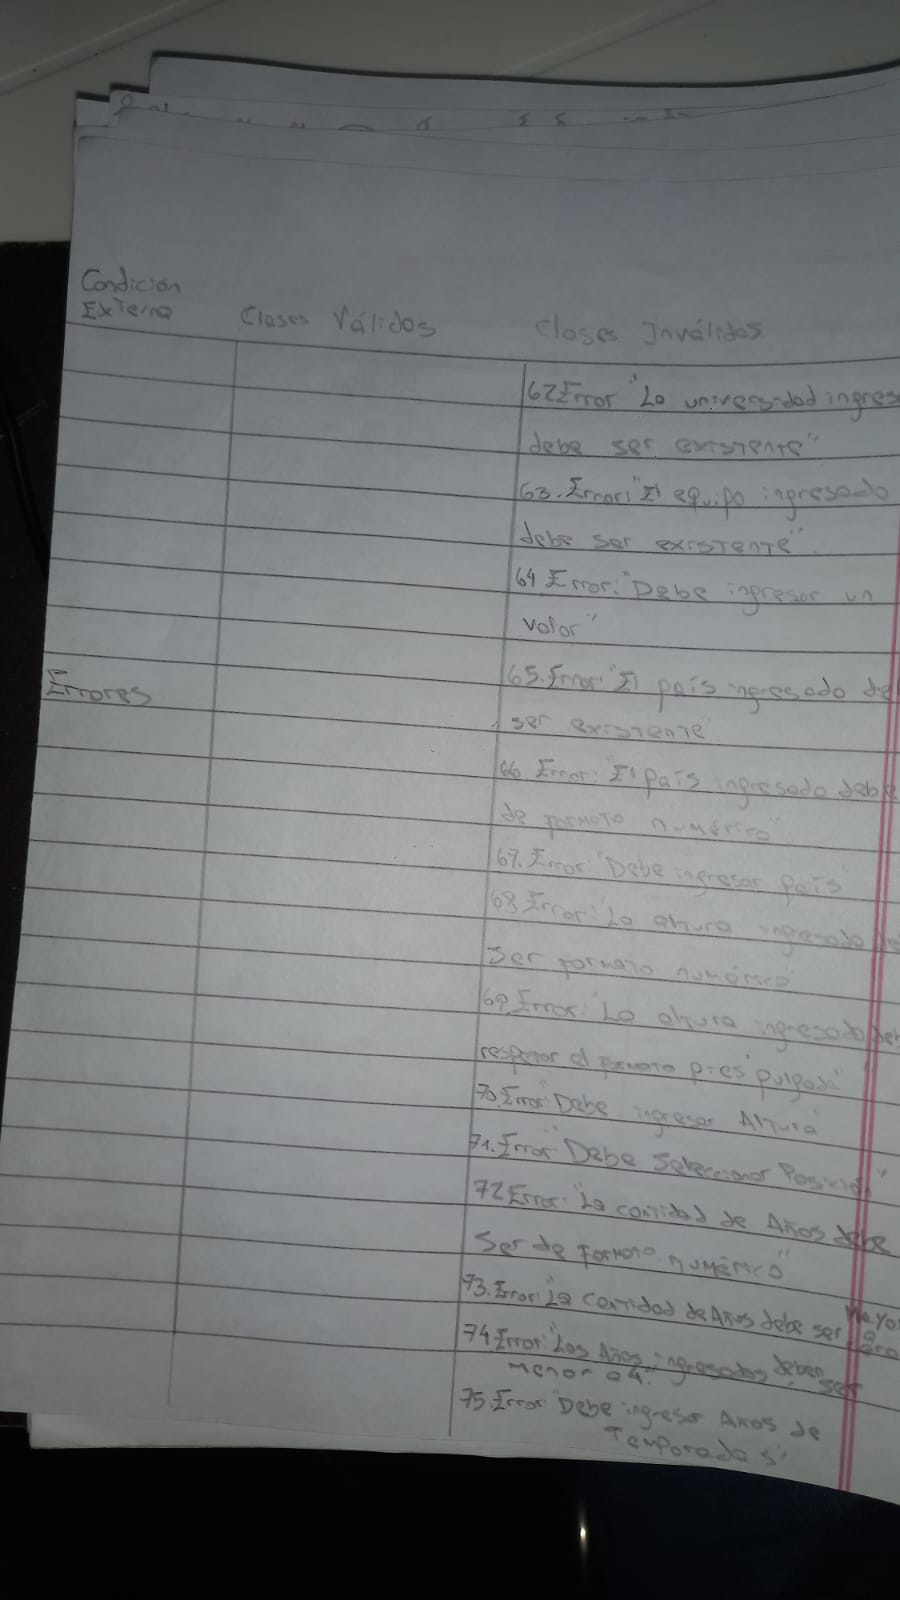 Condición
Externa Clases Válidas Clases Inválidas
62 Error "La universidad ingres
debe ser existente"
63. Error: "El equipo ingresado
debe ser existente"
64. Error: "Debe ingresar un
valor"
Errores
65. Error "El país ingresado deb
ser existente"
66. Error: "El país ingresado debe
de formato numérico"
67. Error "Debe ingresar país"
68 Error: "La altura ingresada de
ser formato numérico"
69. Error: "La altura ingresada deb
respetar el formato pies'pulgada"
70. Error "Debe ingresar Altura"
71. Error "Debe Seleccionar Posición"
72 Error: "La cantidad de Años debe
ser de formato numérico"
73. Error: "La cantidad de Años debe ser mayor
a
74 Error: "Los Años ingresados deben ser
menor a 4"
75. Error "Debe ingresar Años de
Temporadas"